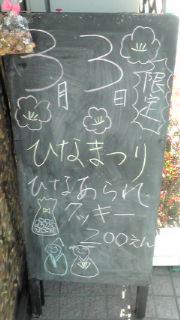 3月3日
限定
ひなまつり
ひなあられ
クッキー
200えん